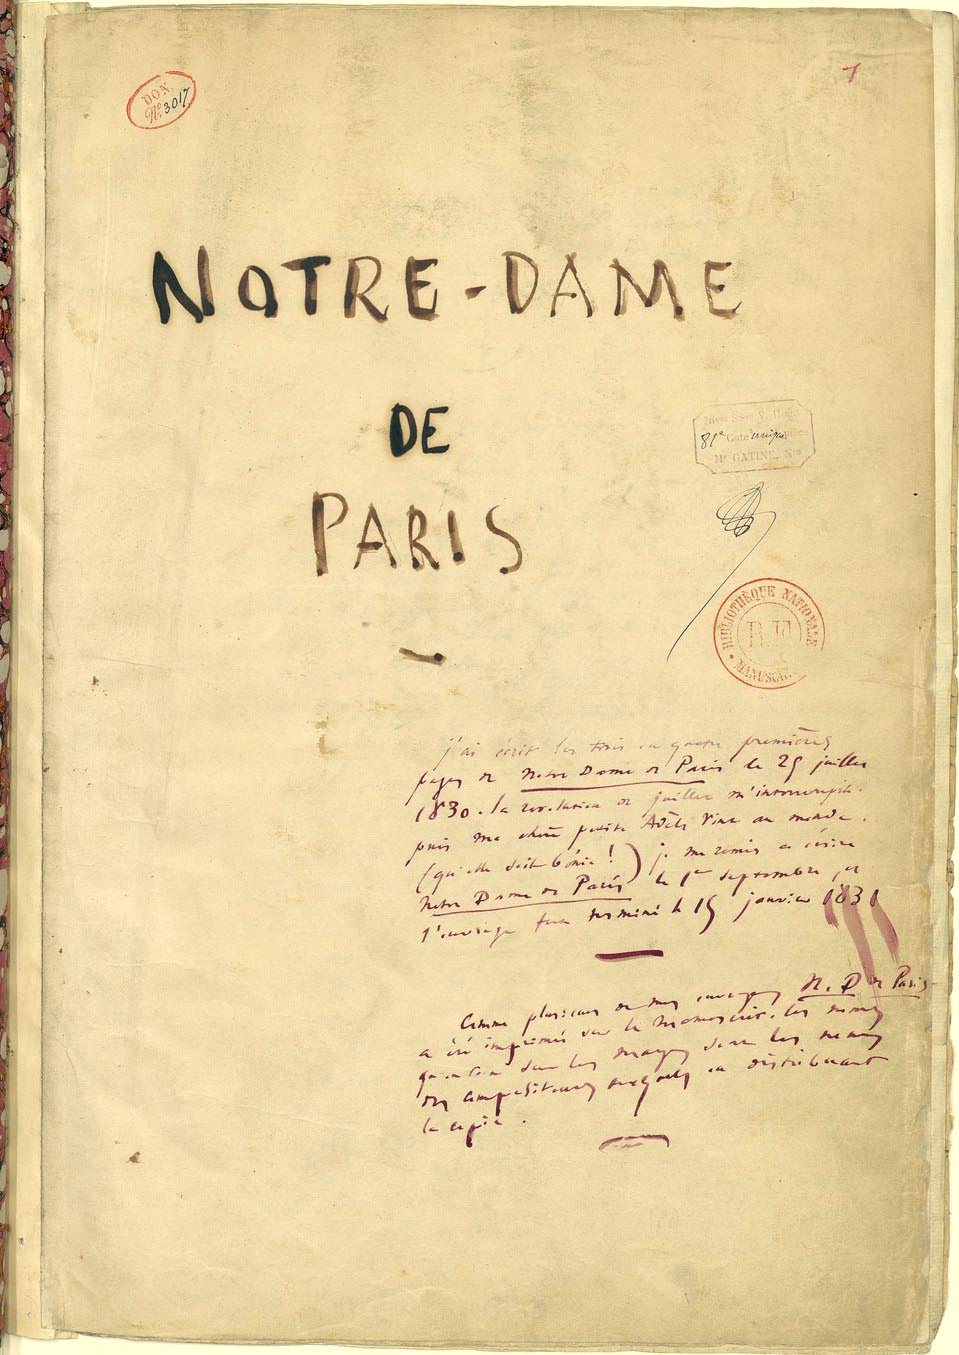 DON.
N° 3017
1
NOTRE-DAME
DE
PARIS
81e Cote
Me GATINE, Nre
BIBLIOTHÈQUE NATIONALE
R.F.
MANUSCRITS
j'ai écrit les trois ou quatre premières
pages de Notre Dame de Paris le 25 juillet
1830. la révolution de juillet m'interrompit.
puis ma chère petite Adèle vint au monde.
(qu'elle soit bénie!) je me remis à écrire
Notre Dame de Paris le 1er septembre, et
l'ouvrage fut terminé le 15 janvier 1831
Comme plusieurs de mes ouvrages N. D de Paris
a été imprimé sur le manuscrit. les noms
qu'on voit dans les marges sont les noms
des compositeurs auxquels on distribuait
la copie.